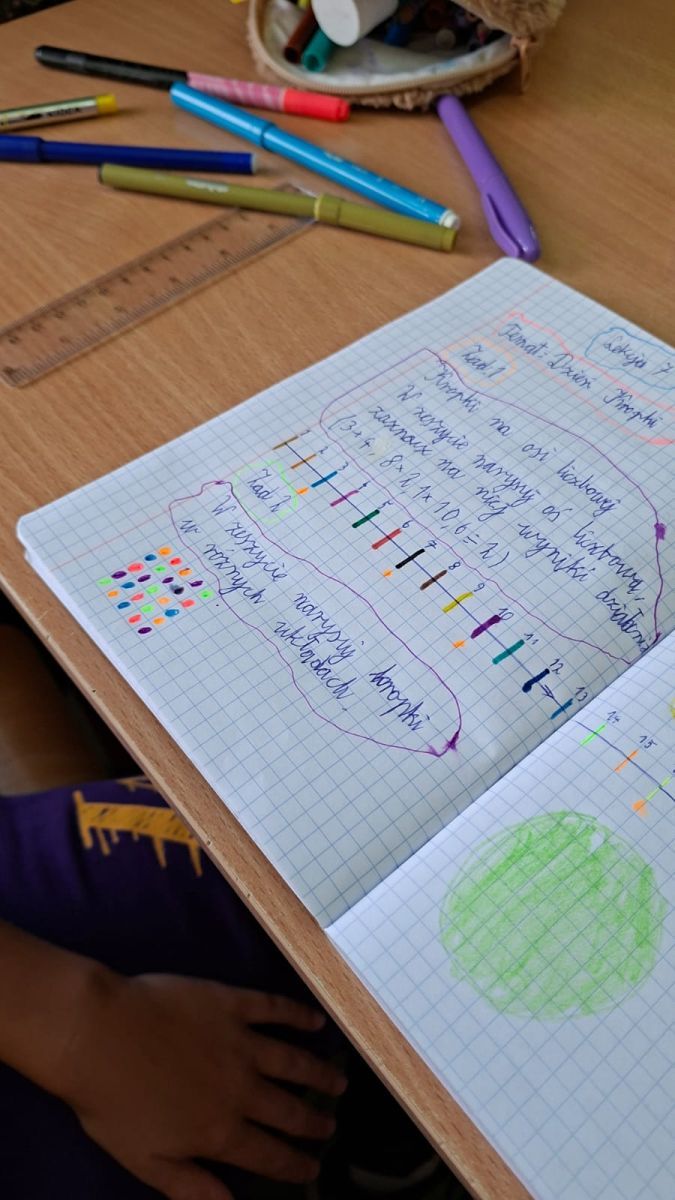 Lekcja 7
Temat: Dzień Kropki
Zad 1
Kropki na osi liczbowej
W zeszycie narysuj oś liczbową,
zaznacz na niej wyniki działania
(3+4, 8×2, 1×10, 6÷2)
1 2 3 4 5 6 7 8 9 10 11 12 13 14 15
Zad 2
W zeszycie narysuj kropki
w różnych układach.